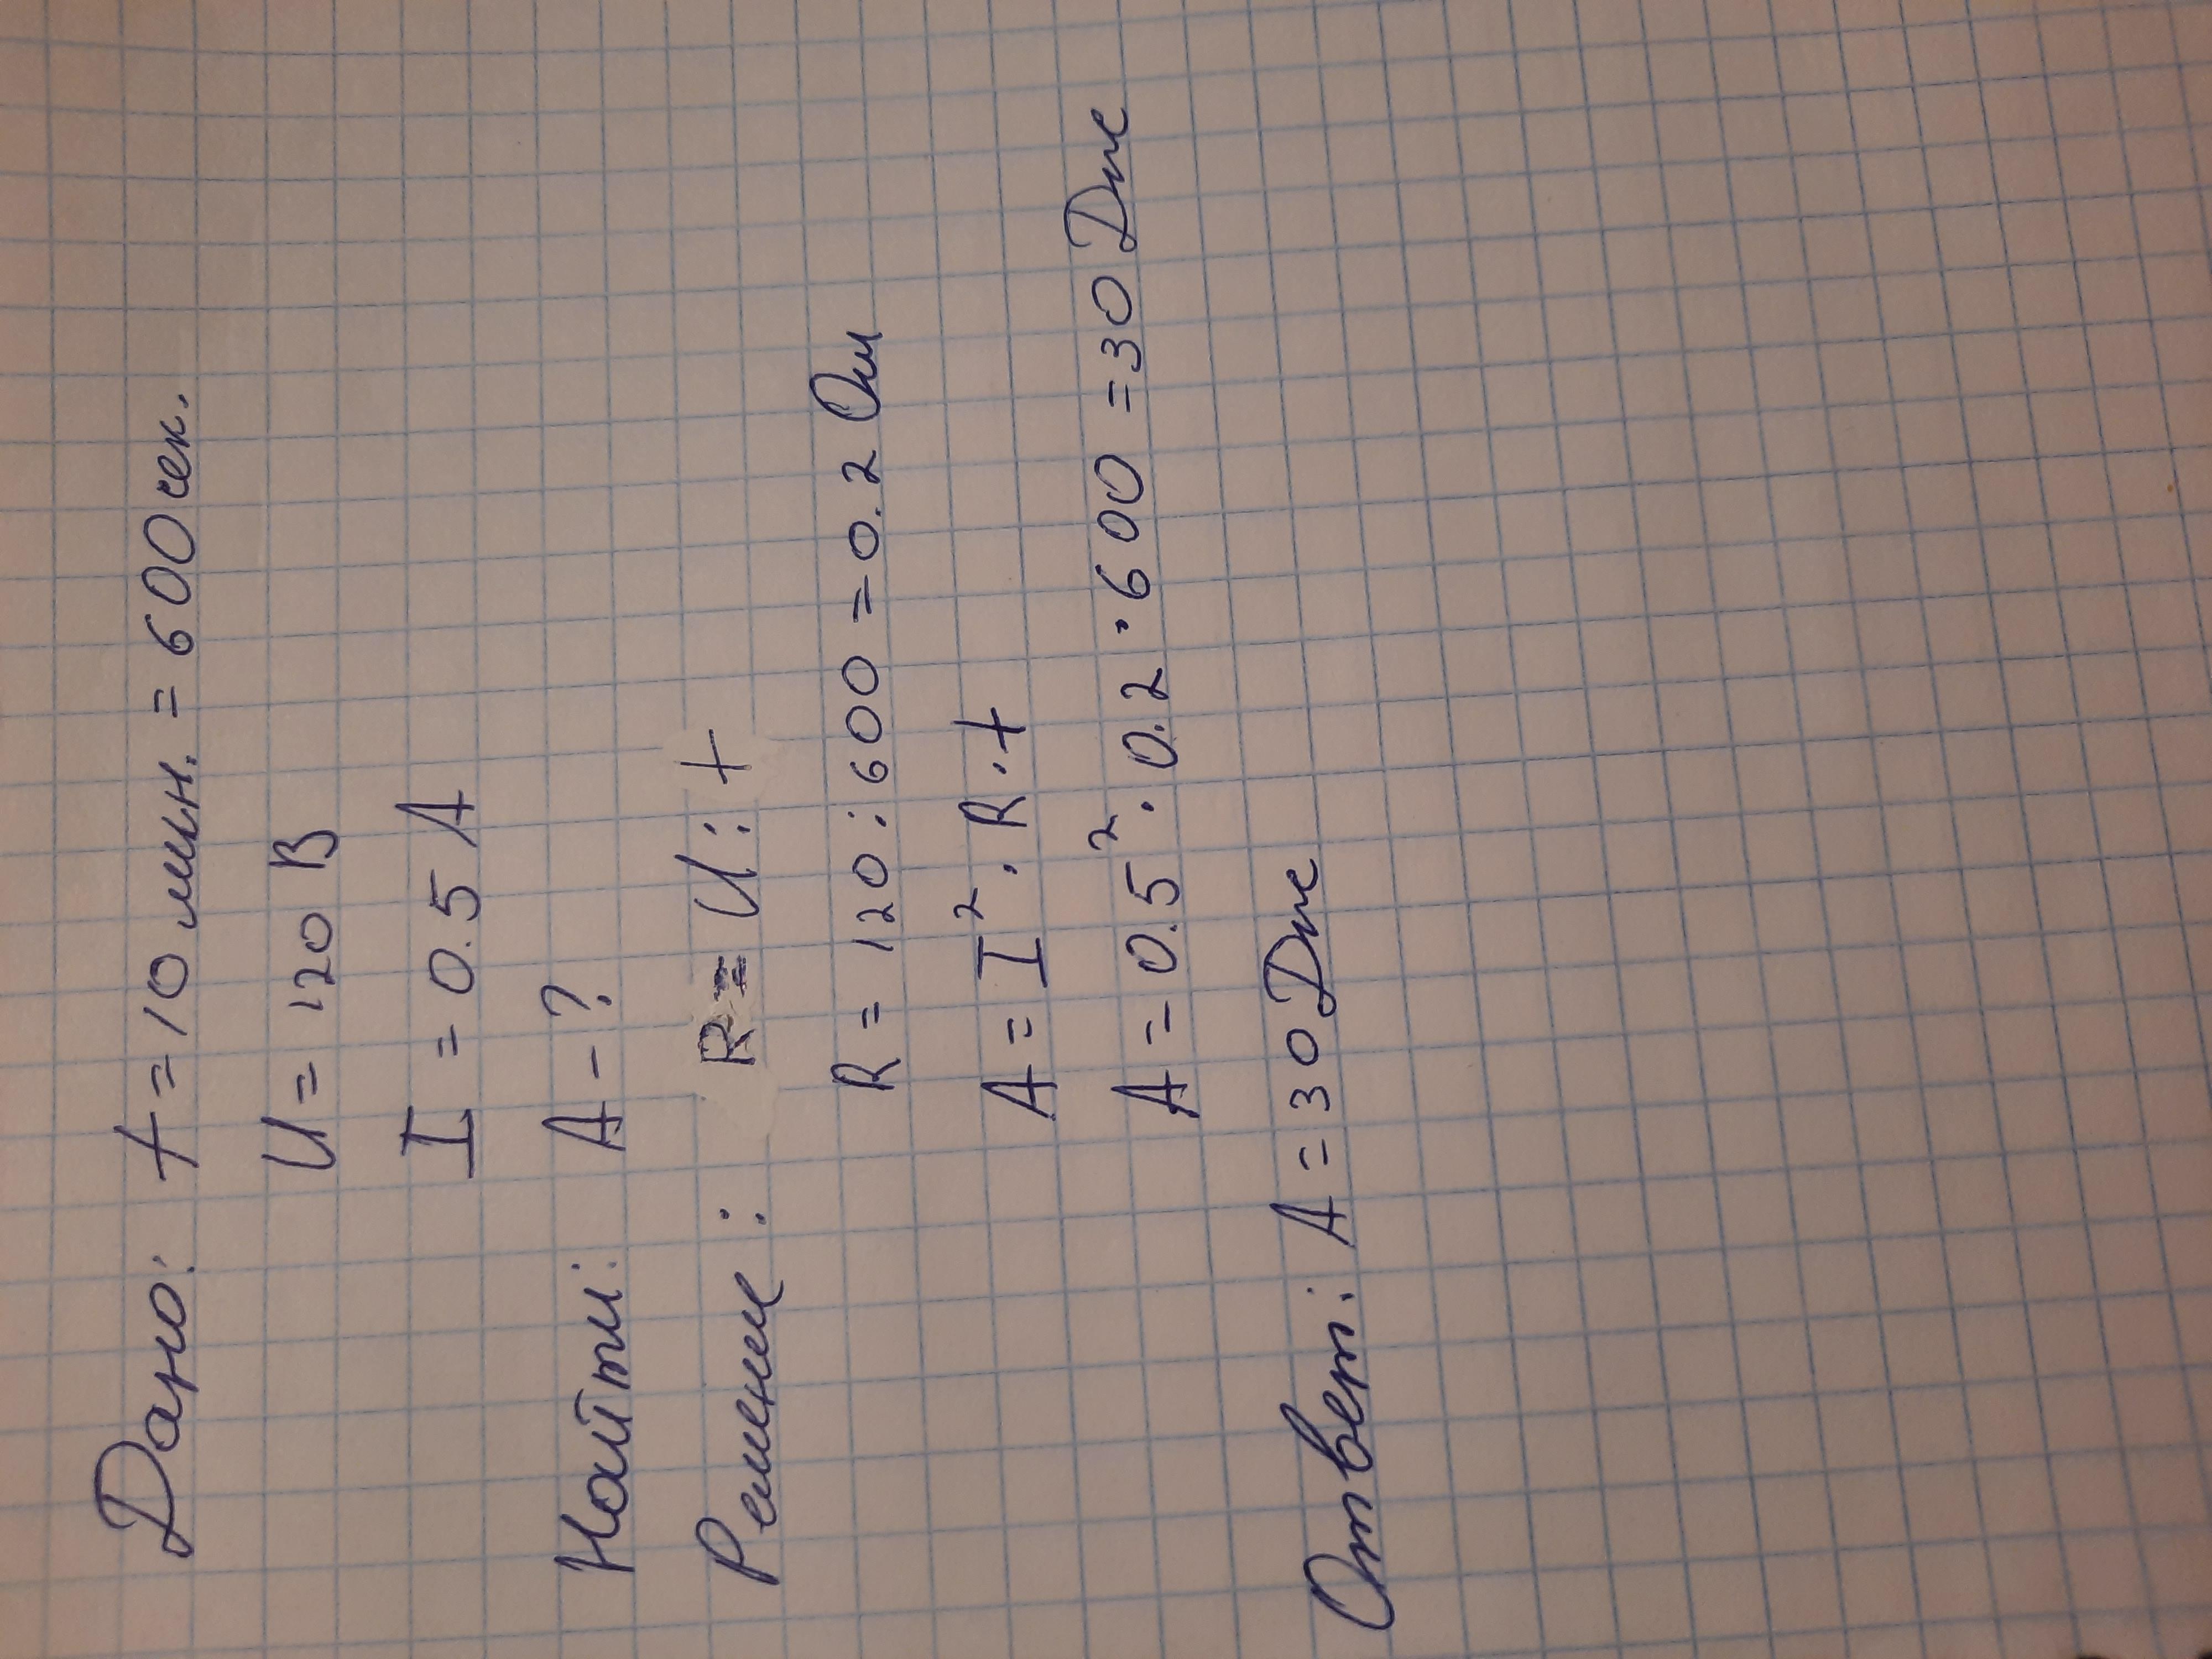 Дано: t=10 мин.=600 сек.
U=120 В
I=0.5 А
Найти: A-?
Решение: R=U:t
R=120:600=0.2 Ом
A=I²·R·t
A=0.5²·0.2·600=30 Дж
Ответ: A=30 Дж